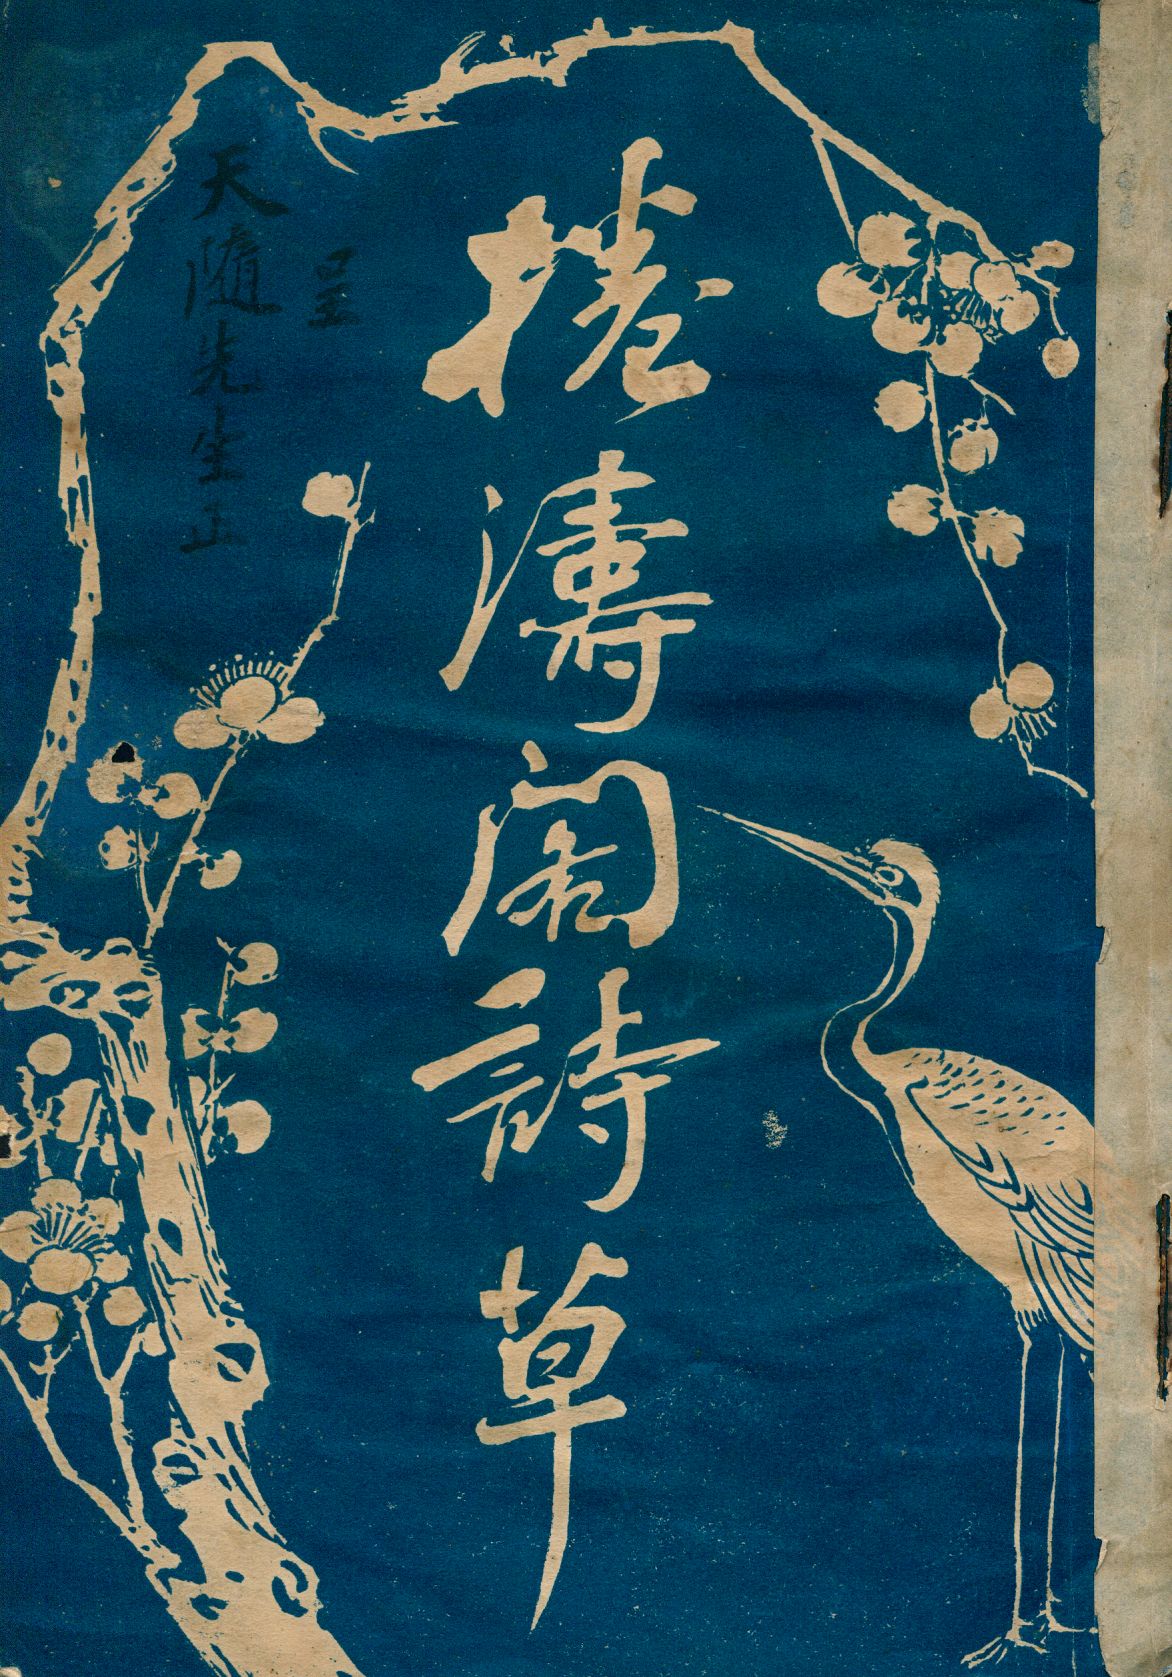 捲濤閣詩草
呈
天隨先生正